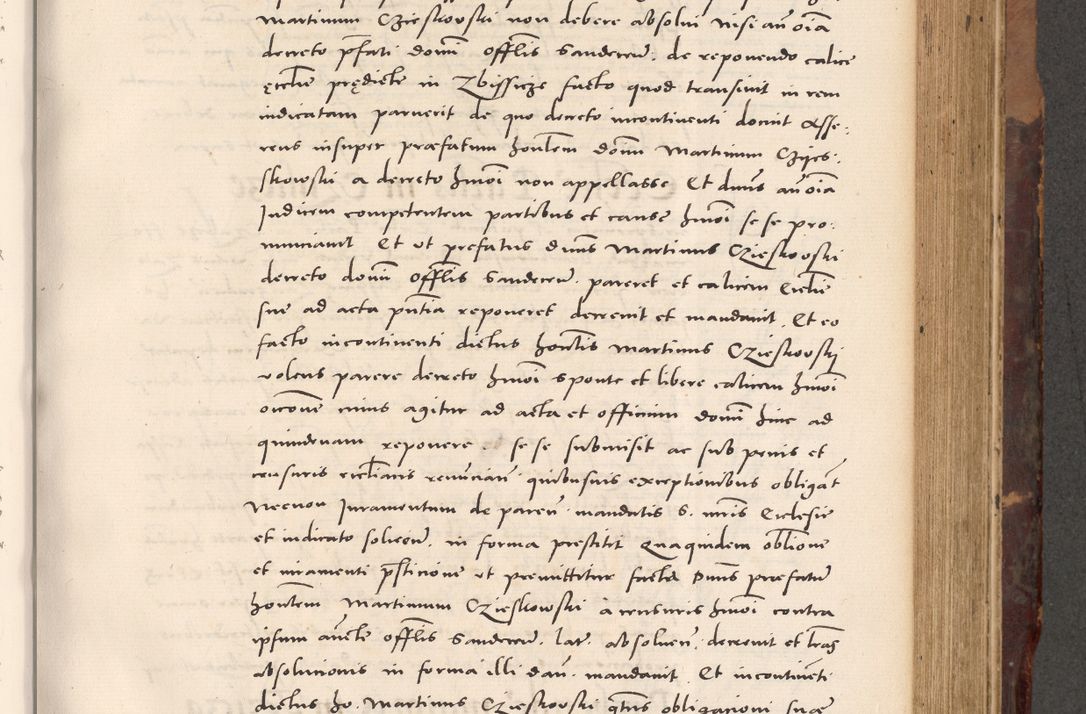 martinum Czieskowski non debere absolui nisi an̄ oīa
decreto p̄fati domī offlīs Sandecēn. de reponendo calice
ecclīe prędictę in Zbissicze facto quod transiuit in rem
iudicatam paruerit de quo decreto incontinenti docuit Asse:
rens insuper præfatum honlem domī Martinum Czyes:
skowski a decreto hmōi non appellasse Et dnus an̄ oīa
Judicem competentem partibus et cause hmōi se se pro:
nunciauit Et vt prefatus dnus Martinus Czieskowski
decreto domī offlīs Sandecēn. pareret et calicem Ecclīe
sue ad acta pn̄tia reponeret decreuit et mandauit. Et eo
facto incontinenti dictus honlis Martinus Czieskowski
volens parere decreto hmōi sponte et libere calicem hmōi
occōne cuius agitur ad acta et officium domī hinc ad
quindenam reponere. se se submisit ac sub penis et
censuris ecclīaris renūcian̄ quibusuis exceptionibus obligāt
Necnon Juramentum de paren̄ mandatis S. mr̄is Ecclesie
et iudicato soluen̄. in forma prestitit Quaquidem oblīone
et iuramenti p̄sticione vt premittitur facta Dnus præfatū
honlem Martinum Czieskowski a censuris hmōi contra
ipsum aucte offlīs Sandecēn. lat. absoluen̄. decreuit et lrās
absolucionis in forma illi dan̄. mandauit. Et incontinēti
dictus ho. Martinus Czieskowski qtūs obligacioni suæ